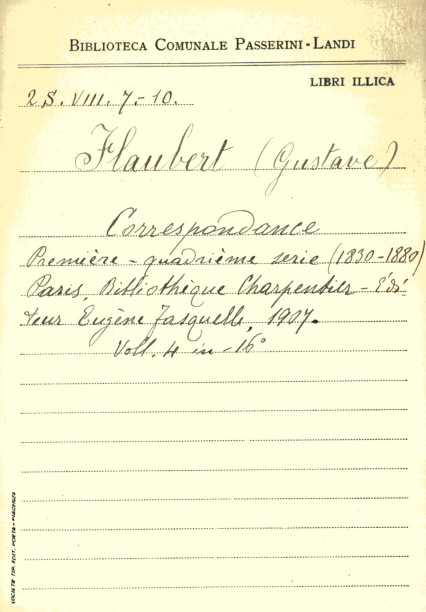 BIBLIOTECA COMUNALE PASSERINI-LANDI
LIBRI ILLICA
2S. VIII. 7-10.
Flaubert (Gustave)
Correspondance
Première - quadrième serie (1830-1880)
Paris, Bibliothique Charpentier - Édi
teur Eugène Fasquelle, 1907.
Voll. 4 in -16°
SOCIETÀ TIP. EDIT. PORTA - PIACENZA